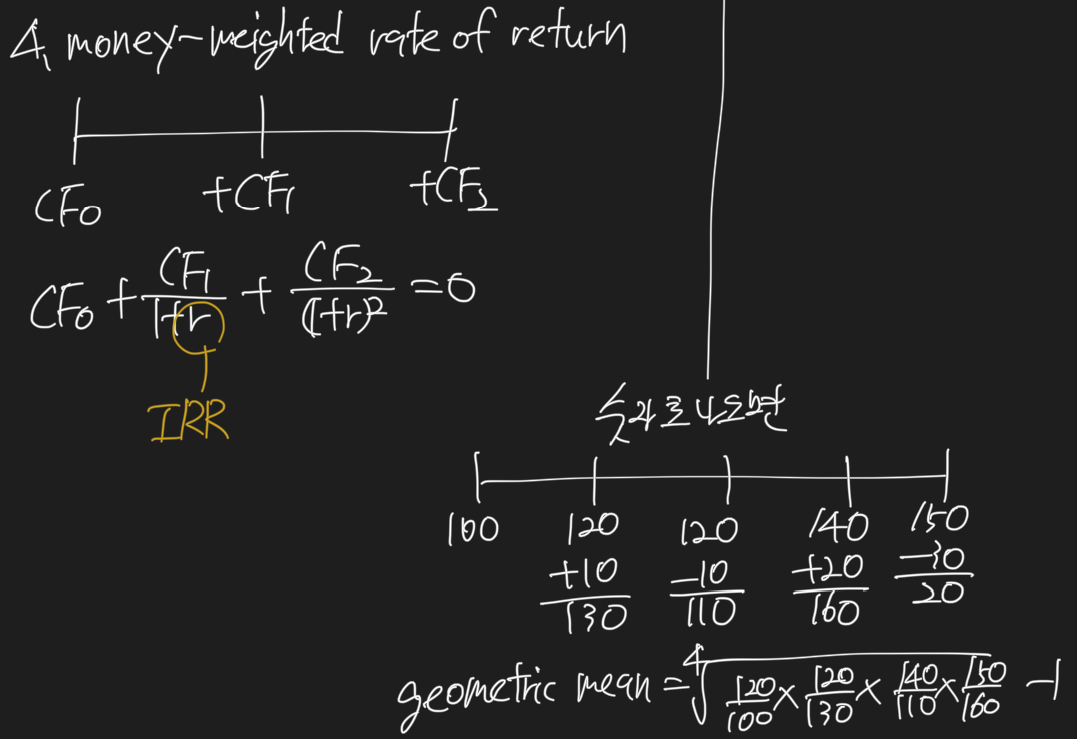 4. money-weighted rate of return
CF0 +CF1 +CF2
CF0 + CF1/(1+r) + CF2/(1+r)² = 0
IRR
숫자로 나오면
100 120 120 140 150
+10 -10 +20 -30
130 110 160 20
geometric mean = ⁴√(120/100 × 120/130 × 140/110 × 150/160) -1